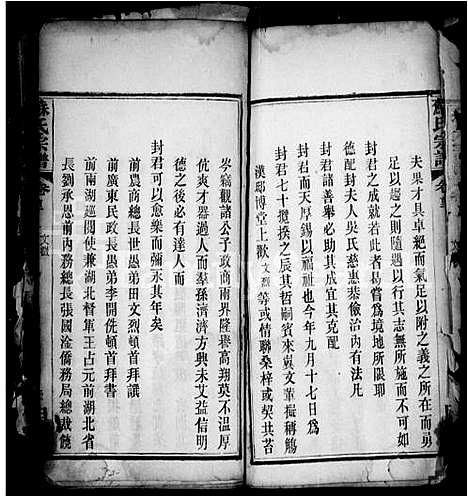 夫果才具卓絕而氣足以附之義之所在而勇
足以趨之則隨遇以行其志無所施而不可如
封君之成就若此者曷嘗爲境地所限耶
德配封夫人吳氏慈惠恭儉治內有法凡
封君諸善舉必助其成宜其克
封君而天厚錫以福祉也今年九月十七日爲
封君七十攬揆之辰其哲嗣賓來冀文華擬稱觴
漢邸博堂上歡文烈等或情聯桑梓或契共苔
岑竊觀諸公子政商兩界隆譽高翔莫不溫厚
优爽才器過人而羣孫濟濟方興未艾益信明
德之後必有達人而
封君可以愈樂而彌永其年矣
前農商總長世愚弟田文烈頓首拜譔
前廣東民政長愚弟李開侁頓首拜書
前兩湖巡閱使兼湖北督軍王占元前湖北省
長劉承恩前內務總長張國淦僑務局總裁饒
蘇氏宗譜
卷首
文類
蘇氏宗譜